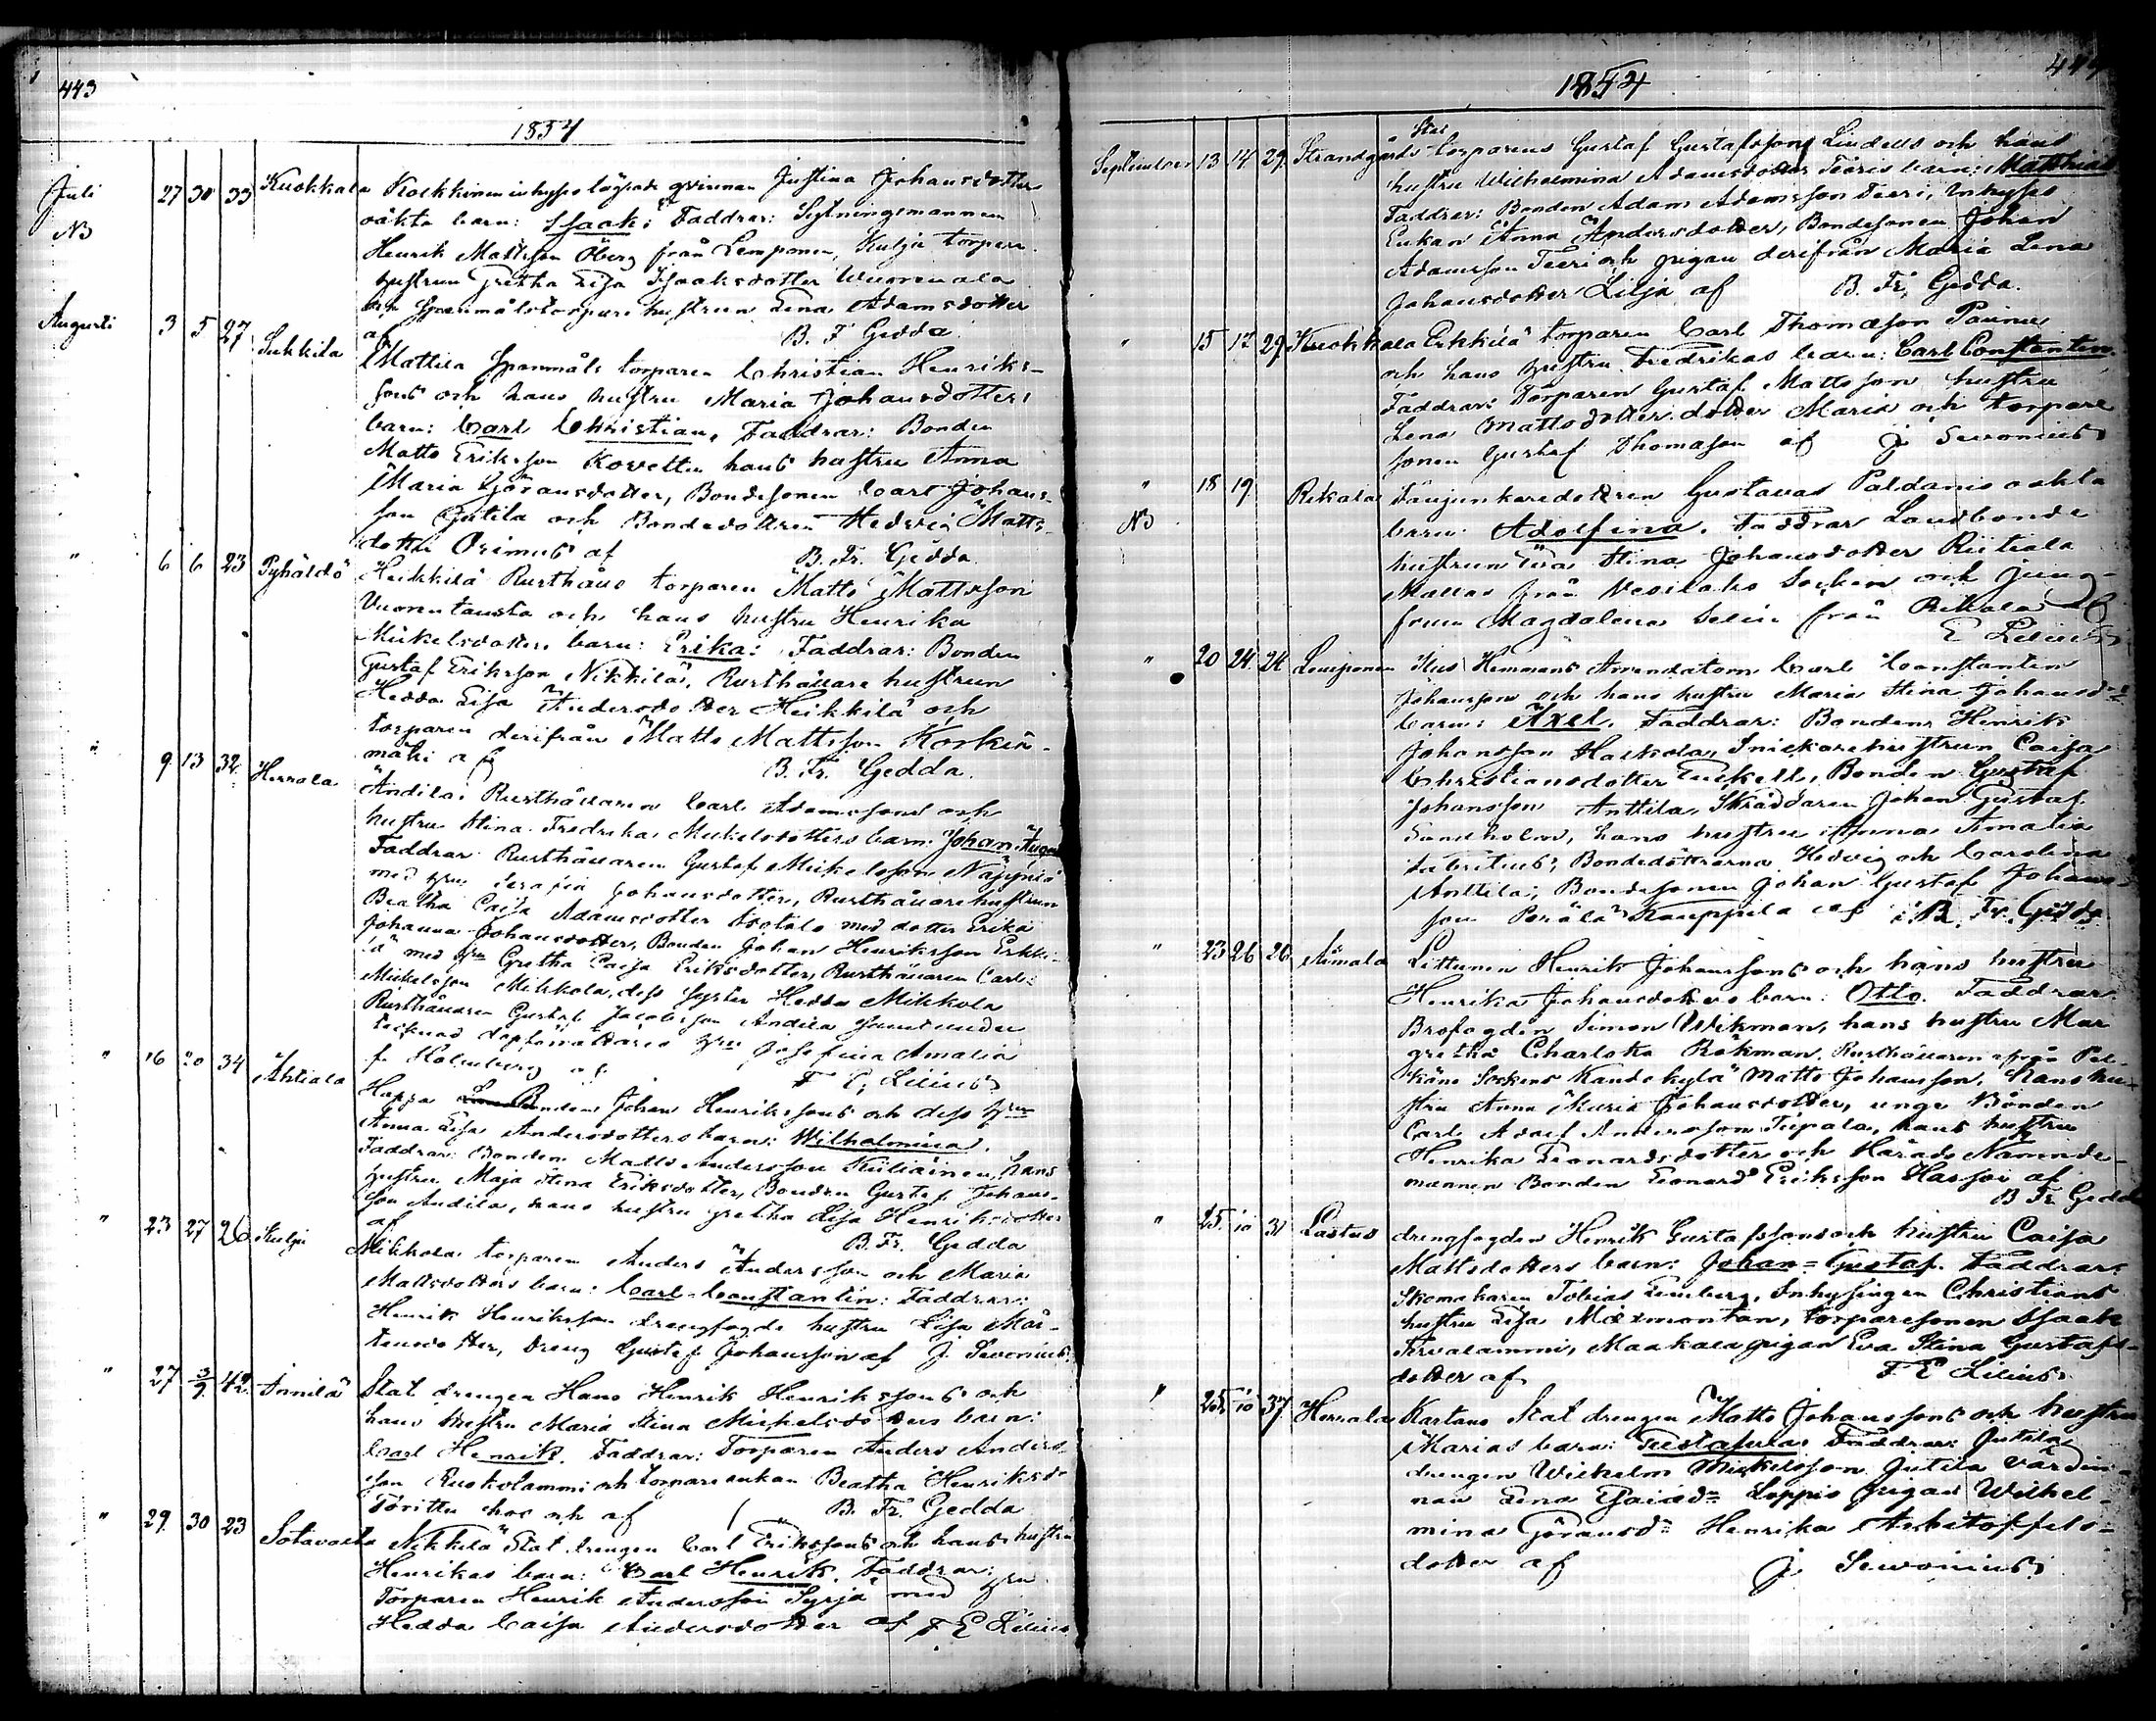 443
1854
Juli 27 30 33 Kuokkala Koskkinen inhyses lägrade qvinnan Justina Johansdotter
NB oäkta barn: Isaak; Faddrar: Sytningsmannen
Henrik Mattsson Öberg från Lemponen, Kulju torpare
hustrun Gretha Lisa Isaaksdotter Wuorenala
och Spanmålstorpare hustrun Lena Adamsdotter
af B. F Gedda
Augusti 3 5 27 Sukkila Mattila Spanmåls torparen Christian Henriks-
sons och hans hustru Maria Johansdotters
barn: Carl Christian, Faddrar: Bonden
Matts Eriksson Korvettu hans hustru Anna
Maria Göransdotter, Bondesonen Carl Johans-
son Jutila och Bondedottren Hedvig Matts-
dotter Orimus af B. Fr. Gedda
" 6 6 23 Pyhäldö Heikkilä Rusthålls torparen Matts Mattsson
Vuorentausta och hans hustru Henrika
Mickelsdotters barn: Erika: Faddrar: Bonden
Gustaf Eriksson Nikkilä, Rusthållare hustrun
Hedda Lisa Andersdotter Heikkilä och
torparen derifrån Matts Mattsson Korkia-
mäki af B. Fr. Gedda.
" 9 13 32 Herrala Andila Rusthållaren Carl Adamssons och
hustru Stina Fredrika Mickelsdotters barn: Johan August
Faddrar Rusthållaren Gustaf Mickelsson Näppilä
med hru Serafia Johansdotter, Rusthållarehustrun
Beatha Caisa Adamsdotter Isotalo med dotter Erika
Johanna Johansdotter, Bonden Johan Henriksson Erkki-
lä med hru Gretha Caisa Eriksdotter, Rusthållaren Carl
Mickelsson Mikkola, dess syster Hedda Mikkola
Rusthållaren Gustaf Jacobsson Andila samt under
tecknad dopförrättares hru Josefina Amalia
f. Holmberg af F E, Lilius
" 16 20 34 Ahtiala Huppa Bonden Johan Henrikssons och dess hru
Anna Lisa Andersdotters barn: Wilhelmina.
Faddrar: Bonden Matts Andersson Kiiliäinen, hans
hustru Maja Stina Eriksdotter, Bonden Gustaf Johans-
son Andila, hans hustru Gretha Lisa Henriksdotter
af B. Fr. Gedda
" 23 27 26 Kulju Mikkola torparen Anders Andersson och Maria
Mattsdotters barn: Carl Constantin: Faddrar:
Henrik Henriksson drengfogde hustru Lisa Mår-
tensdotter, dreng Gustaf Johansson af J. Sevonius.
" 27 3/9 42 Annilä Stat drengen Hans Henrik Henrikssons och
hans hustru Maria Stina Mickelsdotters barn:
Carl Henrik. Faddrar: Torparen Anders Anders
son Ruokolammi och torpareenkan Beatha Henriksdr
hos och af B. Fr. Gedda
" 29 30 23 Sotavalta Nikkilä Stat drengen Carl Erikssons och hans hustru
Henrikas barn: Carl Henrik. Faddrar:
Torparen Henrik Andersson Syrjä med hru
Hedda Caisa Andersdotter af F E Lilius
444
1854
September 13 14 29 Strandgårds Stat torparens Gustaf Gustafsson Lindells och hans
hustru Wilhelmina Adamsdotter Teeris barn: Matthias
Faddrar: Bonden Adam Adamsson Teeri, Inhyses
Enkan Anna Andersdotter, Bondesonen Johan
Adamsson Teeri och pigan derifrån Maria Lena
Johansdotter Lilja af B. Fr. Gedda.
" 15 17 29 Kuokkala Erkkilä torparen Carl Thomasson Painu
och hans hustru Fredrikas barn: Carl Constantin.
Faddrar: Torparen Gustaf Mattsson hustru
Lena Mattsdotter dotter Maria och torpare
sonen Gustaf Thomasson af J Sevonius
" 18 19 Rekola Fanjunkaredottren Gustavas Paldanis oäkta
NB barn: Adolfina. Faddrar Landbonde
hustrun Eva Stina Johansdotter Riitiala
Mallas från Vesilahti Socken och jung-
frun Magdalena Selin från Rekola af
E Lilius
" 20 24 24 Lemponen Kus Hemmans Arrendatorn Carl Constantin
Johansson och hans hustru Maria Stina Johansd:s
barn: Axel. Faddrar: Bonden Henrik
Johansson Haskola, Snickarehustrun Caisa
Christiansdotter Tuckell, Bonden Gustaf
Johansson Anttila, Skräddaren Johan Gustaf
Sandholm, hans hustru Anna Amalia
Fabritius; Bondedöttrarna Hedvig och Carolina
Anttila; Bondesonen Johan Gustaf Johans-
son Perälä Kauppila af B. Fr. Gedda
" 23 26 26 Aimala Littunen Henrik Johanssons och hans hustru
Henrika Johansdotters barn: Otto. Faddrar:
Brofogden Simon Wikman, hans hustru Mar
gretha Charlotta Bökman, Rusthållaren från Pel-
käne Sockens Kandokylä Matts Johansson, hans hu-
stru Anna Maria Johansdotter, unge Bonden
Carl Adolf Andersson Tiipala, hans hustru
Henrika Leonardsdotter och Härads Nämnde-
mannen Bonden Leonard Eriksson Harjoi af
B Fr Gedda
" 25 1/10 31 Lastus drengfogden Henrik Gustafssons och hustru Caisa
Mattsdotters barn: Johan=Gustaf. Faddrar:
Skomakaren Tobias Lemberg, Inhysingen Christians
hustru Lisa Maxmontan, torparesonen Isaak
Tervalammi, Maakala pigan Eva Stina Gustafs-
dotter af F E Lilius
" 25 1/10 37 Herrala Kartano Stat drengen Matts Johanssons och hustru
Marias barn: Gustafva Faddrar: Jutila
drengen Wilhelm Mickelsson Jutila värdin-
nan Lena Loppis Pigan Wilhel-
mina Göransd: Henrika Ankitoffels-
dotter af J Sevonius